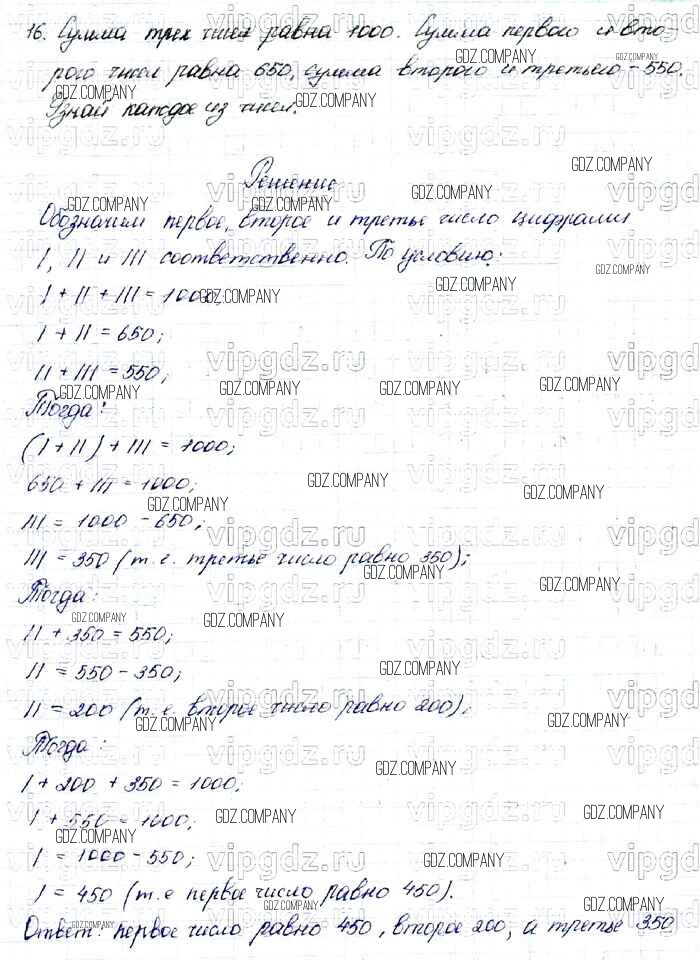 16. Сумма трех чисел равна 1000. Сумма первого и вто-
рого чисел равна 650, сумма второго и третьего - 550.
Узнай каждое из чисел.
Решение
Обозначим первое, второе и третье число цифрами
I, II и III соответственно. По условию:
I + II + III = 1000;
I + II = 650;
II + III = 550;
Тогда:
(I + II) + III = 1000;
650 + III = 1000;
III = 1000 - 650;
III = 350 (т.е. третье число равно 350);
Тогда:
II + 350 = 550;
II = 550 - 350;
II = 200 (т.е. второе число равно 200);
Тогда:
I + 200 + 350 = 1000;
I + 550 = 1000;
I = 1000 - 550;
I = 450 (т.е первое число равно 450).
Ответ: первое число равно 450, второе 200, а третье 350